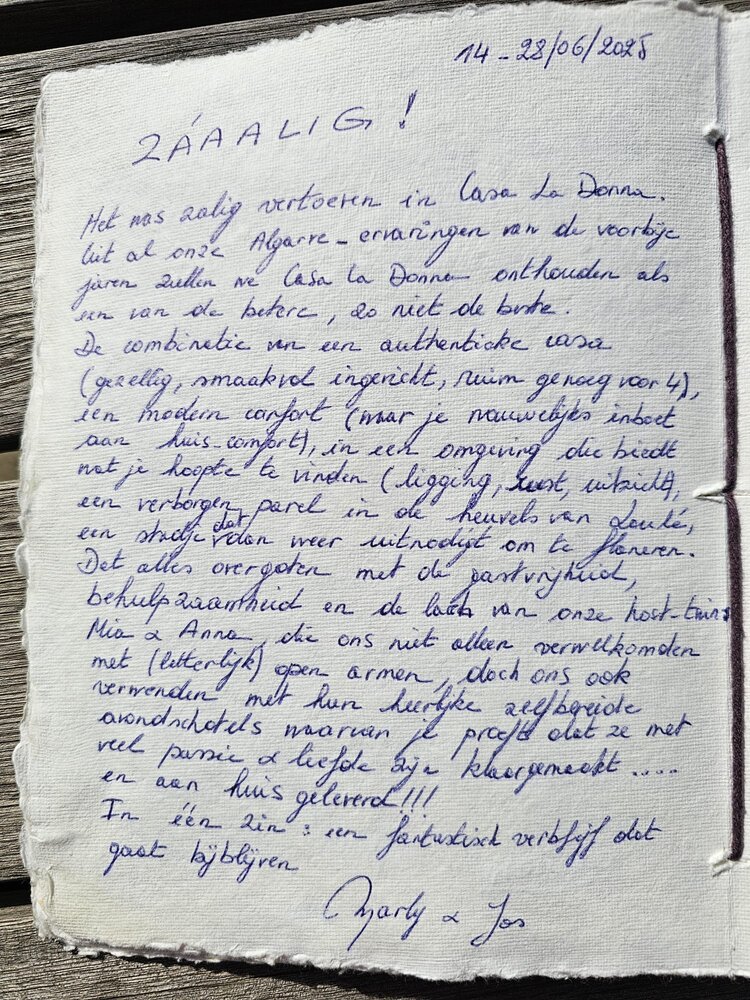 14-28/06/2025
ZÁAALIG!
Het was zalig vertoeven in Casa La Donna.
Uit al onze Algarve-ervaringen van de voorbije
jaren zullen we Casa La Donna onthouden als
een van de betere, zo niet de beste.
De combinatie van een authentieke casa
(gezellig, smaakvol ingericht, ruim genoeg voor 4),
een modern comfort (waar je nauwelijks inboet
aan huis-comfort), in een omgeving die biedt
wat je hoopte te vinden (ligging, rust, uitzicht),
een verborgen parel in de heuvels van Loulé,
een stadje dat dan weer uitnodigt om te flaneren.
Dit alles overgoten met de gastvrijheid,
behulpzaamheid en de lach van onze host-twins
Mia & Anna, die ons niet alleen verwelkomden
met (letterlijk) open armen, doch ons ook
verwenden met hun heerlijke zelfbereide
avondschotels waarvan je proeft dat ze met
veel passie & liefde zijn klaargemaakt .....
en aan huis geleverd!!!
In één zin: een fantastisch verblijf dat
gaat bijblijven
Marly & Jos